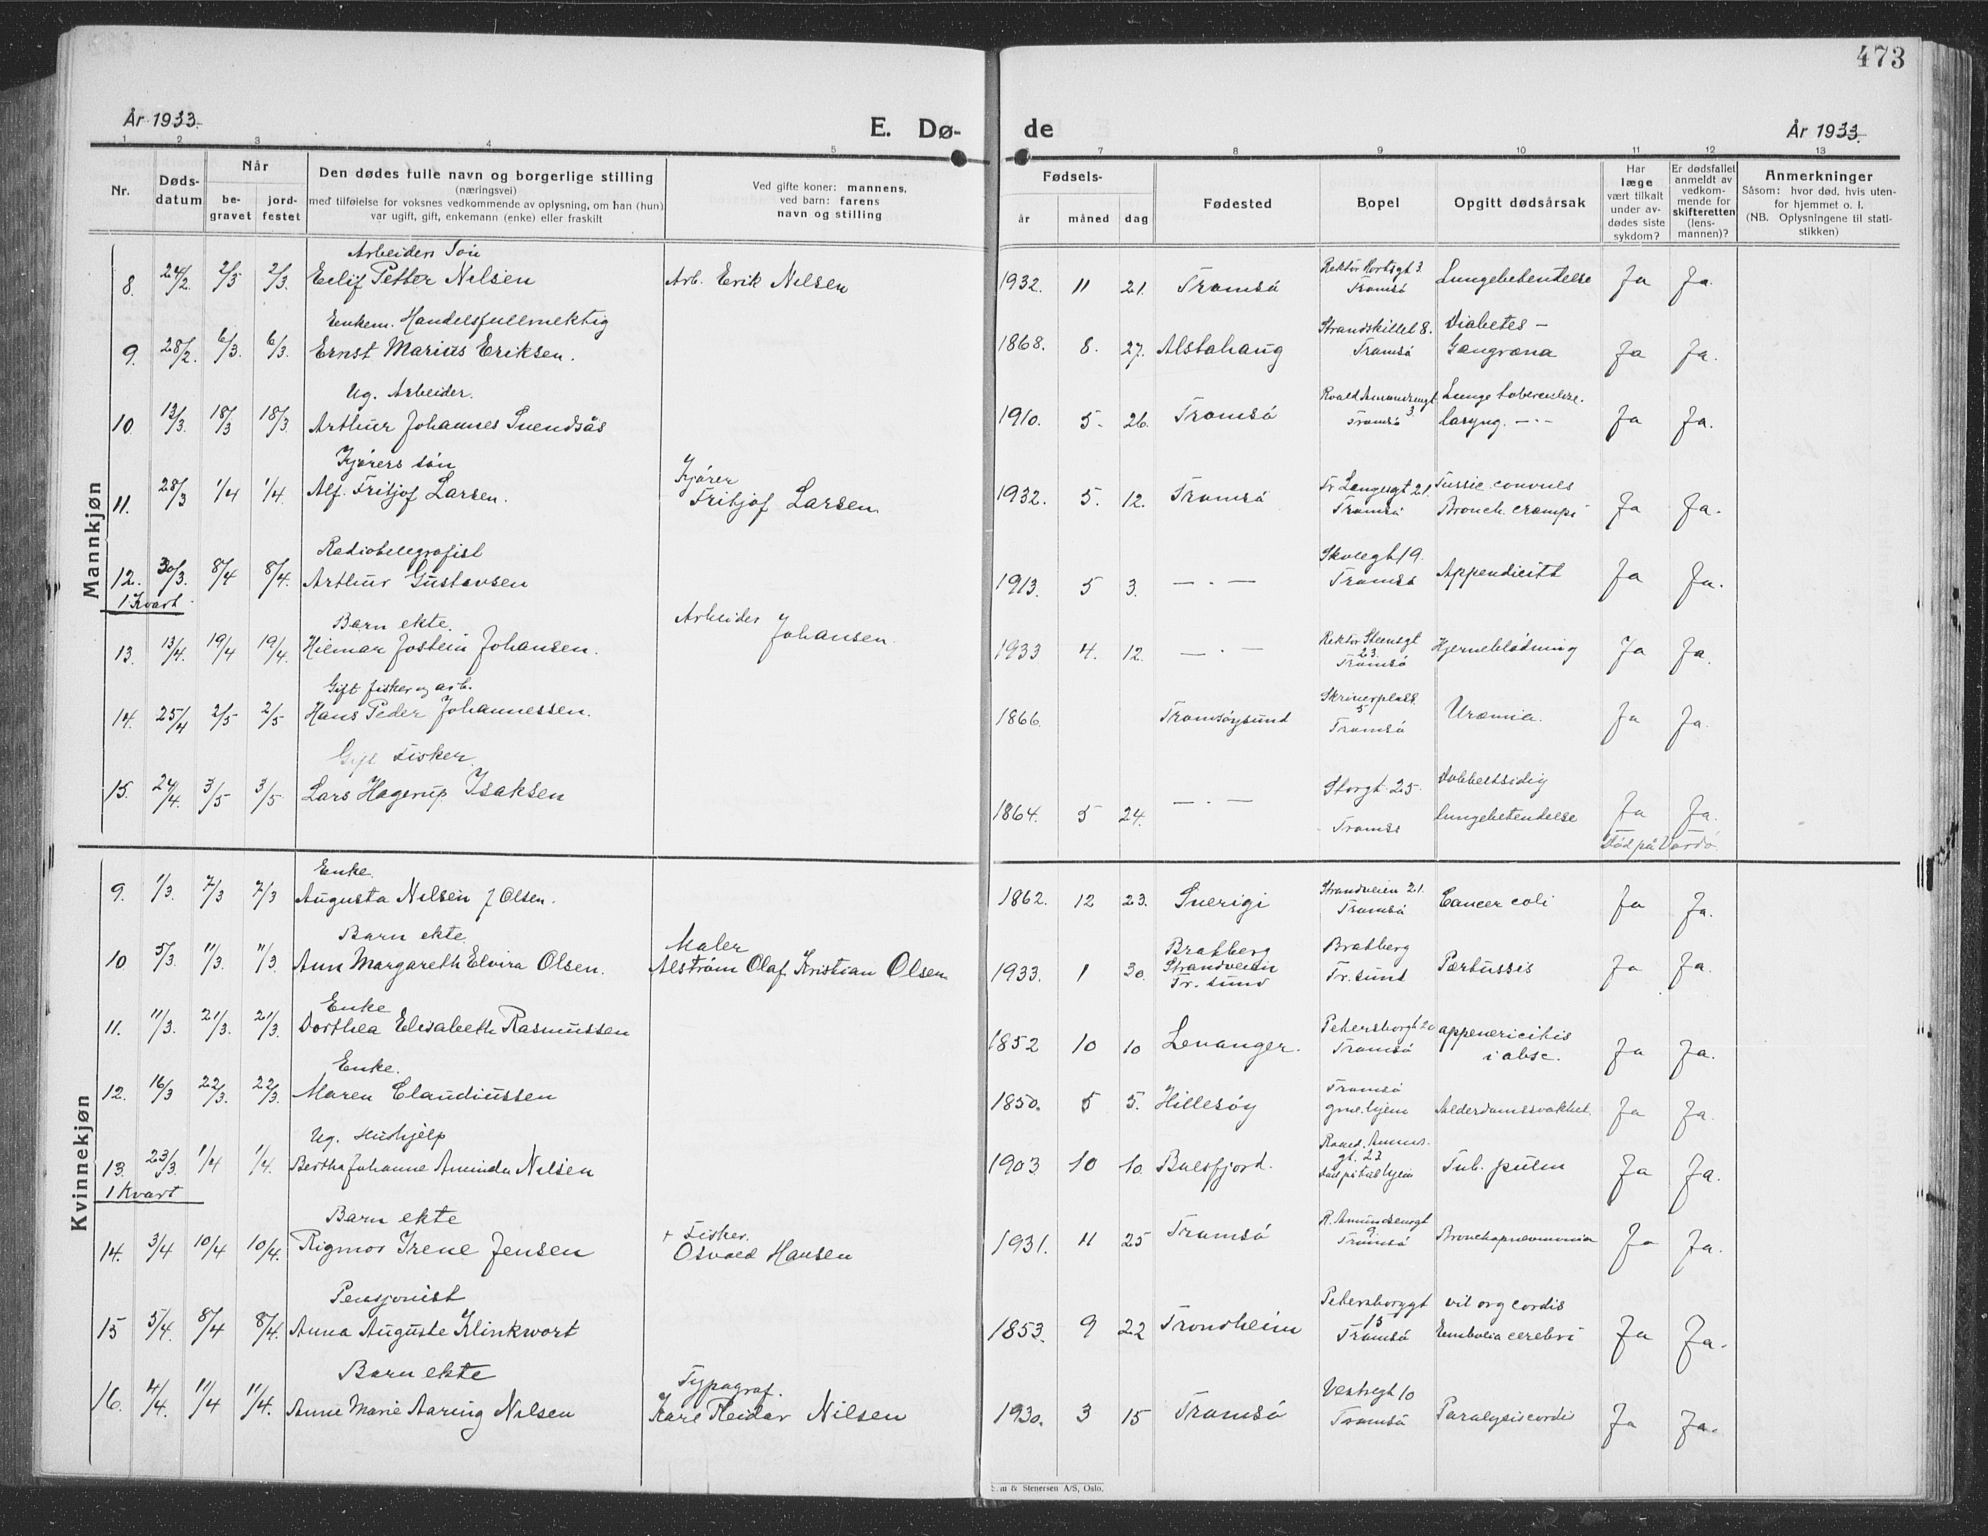 473
År 1933.
E. Dø-
de
År 1933.
1 2 3 4 5 7 8 9 10 11 12 13
Nr.
Døds-
datum
Når
be-
gravet
jord-
festet
Den dødes fulle navn og borgerlige stilling
(næringsvei)
med tilføielse for voksnes vedkommende av oplysning, om han (hun)
var ugift, gift, enkemann (enke) eller fraskilt
Ved gifte koner: mannens,
ved barn: farens
navn og stilling
Fødsels-
år måned dag
Fødested
Bopel
Opgitt dødsårsak
Har
læge
vært tilkalt
under av-
dødes siste
sykdom?
Er dødsfallet
anmeldt av
vedkom-
mende for
skifteretten
(lens-
mannen)?
Anmerkninger
Såsom: hvor død, hvis uten-
for hjemmet o. l.
(NB. Oplysningene til stati-
stikken)
Mannkjøn
Arbeiders Søn
8. 24/2. 2/3 2/3. Eelif Petter Nilsen Arb. Erik Nilsen 1932. 11 21. Tromsö Rektor Hortsgt 3. Tromsö Lungebetendelse Ja Ja.
Enkem. Handelsfullmektig
9. 28/2. 6/3. 6/3. Ernst Marius Eriksen. 1868. 8. 27. Alstahaug Strandskillet 8. Tromsö Diabetes - Gangræna Ja Ja.
Ug. Arbeider.
10. 13/3. 18/3 18/3. Arthur Johannes Svendsås 1910. 5. 26. Tromsö Roald Amundsengt 3 Tromsö Lunge tuberculose. laryng. -"- Ja Ja.
Kjörers sön
11. 28/3 1/4 1/4. Alf. Fritjof Larsen. Kjörer Fritjof Larsen. 1932. 5. 12. Tromsö Fr Langesgt 21. Tromsö Tussis convuls Bronch. Ja Ja.
Radiotelegrafist
12. 30/3. 8/4 8/4. Arthur Gustavsen 1913. 5 3. — . — Skolegt 19. Tromsö Appendicitt Ja Ja.
1 Kvart.
Barn ekte.
13. 13/4. 19/4 19/4. Hilmar Jostein Johansen. Arbeider Johansen. 1933 4. 12. — . — Rektor Steensgt 23. Tromsö Hjerneblödning Ja Ja.
Gift fisker og arb.
14. 25/4 2/5 2/5 Hans Peder Johannessen. 1866. Tromsöysund Skriverplass 5 Tromsö Uræmia. Ja Ja.
Gift Fisker
15. 24/4. 3/5 3/5 Lars Hagerup Isaksen 1864. 5 24. — . — Storgt 25. Tromsö Dobbeltsidig lungebetendelse Ja Ja.
Död på Vardö.
Kvinnekjøn
Enke.
9. 1/3. 7/3 7/3 Augusta Nilsen f Olsen. 1862. 12 23. Sverigi Strandveien 21. Tromsö Cancer coli Ja Ja.
Barn ekte
10 5/3. 11/3. 11/3. Ann Margareth Elvira Olsen. Maler Alström Olaf Kristian Olsen 1933. 1 30. Bratberg Strandveien Tr. sund Bratberg Tr. sund Pertussis Ja Ja.
Enke
11. 11/3. 21/3. 21/3. Dorthea Elisabeth Rasmussen 1852 10 10 Levanger. Petersborgt 20 Tromsö appenericitis i absc. Ja Ja.
Enke.
12. 16/3 22/3. 22/3. Maren Claudiussen 1850. 5 5. Hillesöy Tromsö gml.hjem Alderdomssvakhet. Ja Ja.
Ug. Hushjelp
13. 23/3. 1/4 1/4. Bertha Johanne Aminda Nilsen 1903 10 10. Balsfjord. Roald. Amuns. gt. 23 Tub. pulm Ja Ja.
1 Kvart
Barn ekte
14. 3/4 10/4 10/4. Rigmor Irene Jensen + Fisker. Osvald Hansen 1931. 11 25 Tromsö R. Amundsensgt 9 Tromsö Bronchopneumonia Ja Ja.
Pensjonist
15 5/4. 8/4 8/4. Anna Auguste Klinkwort 1853. 9 22 Trondheim Petersborggt 15 Tromsö vit org cordis Embolia cerebri Ja Ja.
Barn ekte
16. 4/4. 11/4 11/4. Anne Marie Aaring Nilsen Typograf. Karl Reidar Nilsen 1930. 3 15 Tromsö Vestregt 10 Tromsö Paralysis cordis Ja Ja.
& Stenersen A/S, Oslo.